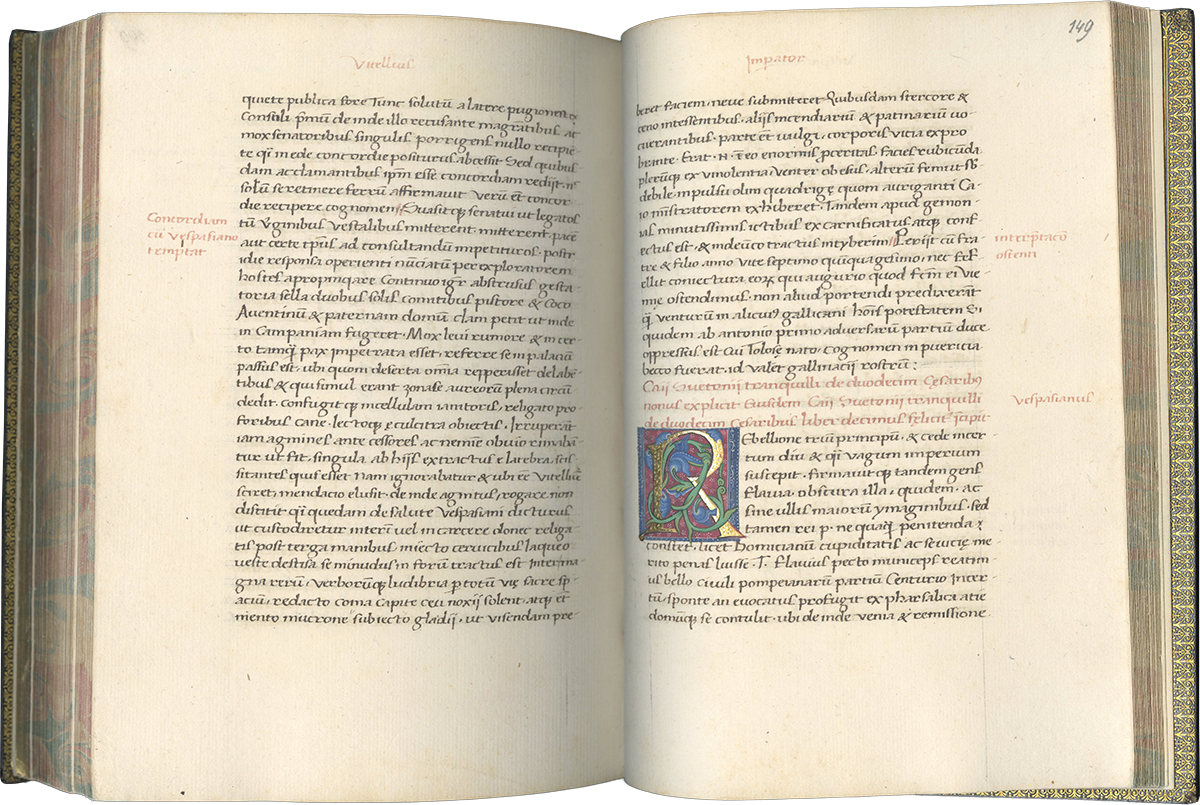 Vitellius
quiete publica fore Tunc solutū a latere pugionem
Consuli pmū de inde illo recusante magr̄tibus ac
mox senatoribus singulis porrigens nullo recipiē
te qn̄ in ede concordie positurus abscessit Sed quibus
dam acclamantibus ipm̄ esse concordiam redijt
solū se retinere ferrū affirmauit verū et̄ concor
die recipere cognomen Suasitq; senatui ut legatos
cū virginibus vestalibus mitterent pacē
Concordiam
cū vespasiano
temptat
aut certe tp̄us ad consultandū impetituros · postr
idie responsa operienti nūciatū per exploratorem
hostes apropinquare Continuo igr̄ abstrusus gesta
toria sella duobus solis comitibus pistore & coco
Auentinū & paternam domū clam petit ut inde
in Campaniam fugeret · Mox leui rumore & incer
to tamq̄ pax impetrata esset, referre se in palaciū
passus est, ubi quom deserta omia repperisset delabē
tibus & qui simul erant zona se aureorum plena circū
dedit. Confugitq; in cellulam ianitoris, religato pro
foribus cane · lectoq; & culcitra obiectis. Irruperāt
iam agminis antecessores, ac nemine obuio rimabā
tur ut fit, singula, ab hijs extractus e latebra, scis
sitantes quis esset nam ignorabatur & ubi eē vitelliū
sciret, mendacio elusit · de inde agnitus, rogare non
distitit qn̄ quedam de salute vespasiani dicturus
ut custodiretur interī vel in carcere donec religa
tis post terga manibus iniecto ceruicibus laqueo
ueste destisa seminudus in forū tractus est inter ma
gna rerū, verborūq; ludibria p totū vię sacre sp̄
aciū, redacto coma capite ceu noxij solent, atq; et̄
mento mucrone subiecto gladij, ut visendam pre
149
Impator
beret faciem, neue submitteret Quibusdam stercore &
ceno incessentibus · alijs incendiarium & patinarium uo
ciuerantibus · parte et̄ vulgi, corporis vicia expro
brante · Erat · N · ī eo enormis pceritas, facies rubicunda
plerūq; ex vinolentia venter obesus, alterū femur sb
debile, impulsu olim quadrigę quom auriganti Ca
io ministratorem exhiberet · Tandem apud gemon
ias minutissimis ictibus excarnificatus atq; conf
ectus est · & inde unco tractus in tyberim Perijt cū fra
tre & filio anno vite septimo quinquagesimo, nec fef
interp̄tacō
ostenti
ellit coniectura eorū qui augurio quod fcm̄ ei Vie
nne ostendimus · non aliud portendi predixerāt
q̄ venturū in alicuius gallicani hoīs potestatem Si
quidem ab antonio primo aduersarū partiū duce
oppressus est Cui Tolosę nato, cognomen in puericia
becco fuerat, id valet gallinacij rostrū :
Caij Suetonij tranquilli de duodecim Cesaribus
nonus explicit Eiusdem Caij Suetonij tranquilli
de duodecim Cesaribus liber decimus felicit̄ īcipit
Vespasianus
REbellione triū principū · & cede incer
tum diu & qn̄ vagum imperium
suscepit · firmauitq; tandem gens
flauia, obscura illa, quidem · ac
sine ullis maiorū ymaginibus, sed
tamen rei p · ne quaq̄ penitenda
constet, licet Domicianū cupiditatis ac seuicię me
rito penas luisse · T · Flauius pecto municeps reatin
us bello ciuili pompeianarū partiū Centurio incer
tū, sponte an euocatus profugit ex pharsalica acie
domūq; se contulit · ubi de inde venia & remissione